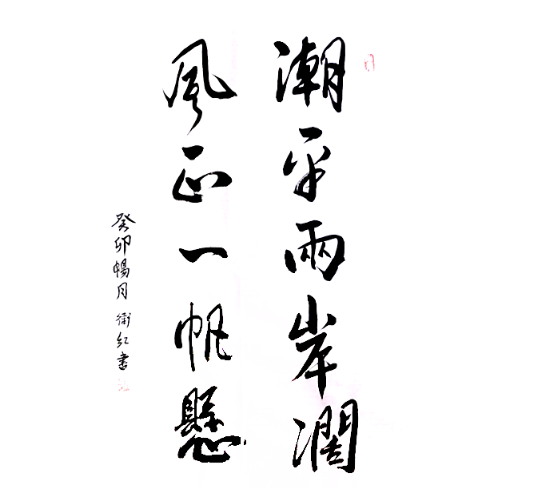 潮平兩岸濶
風正一帆懸
癸卯暢月 衛紅書